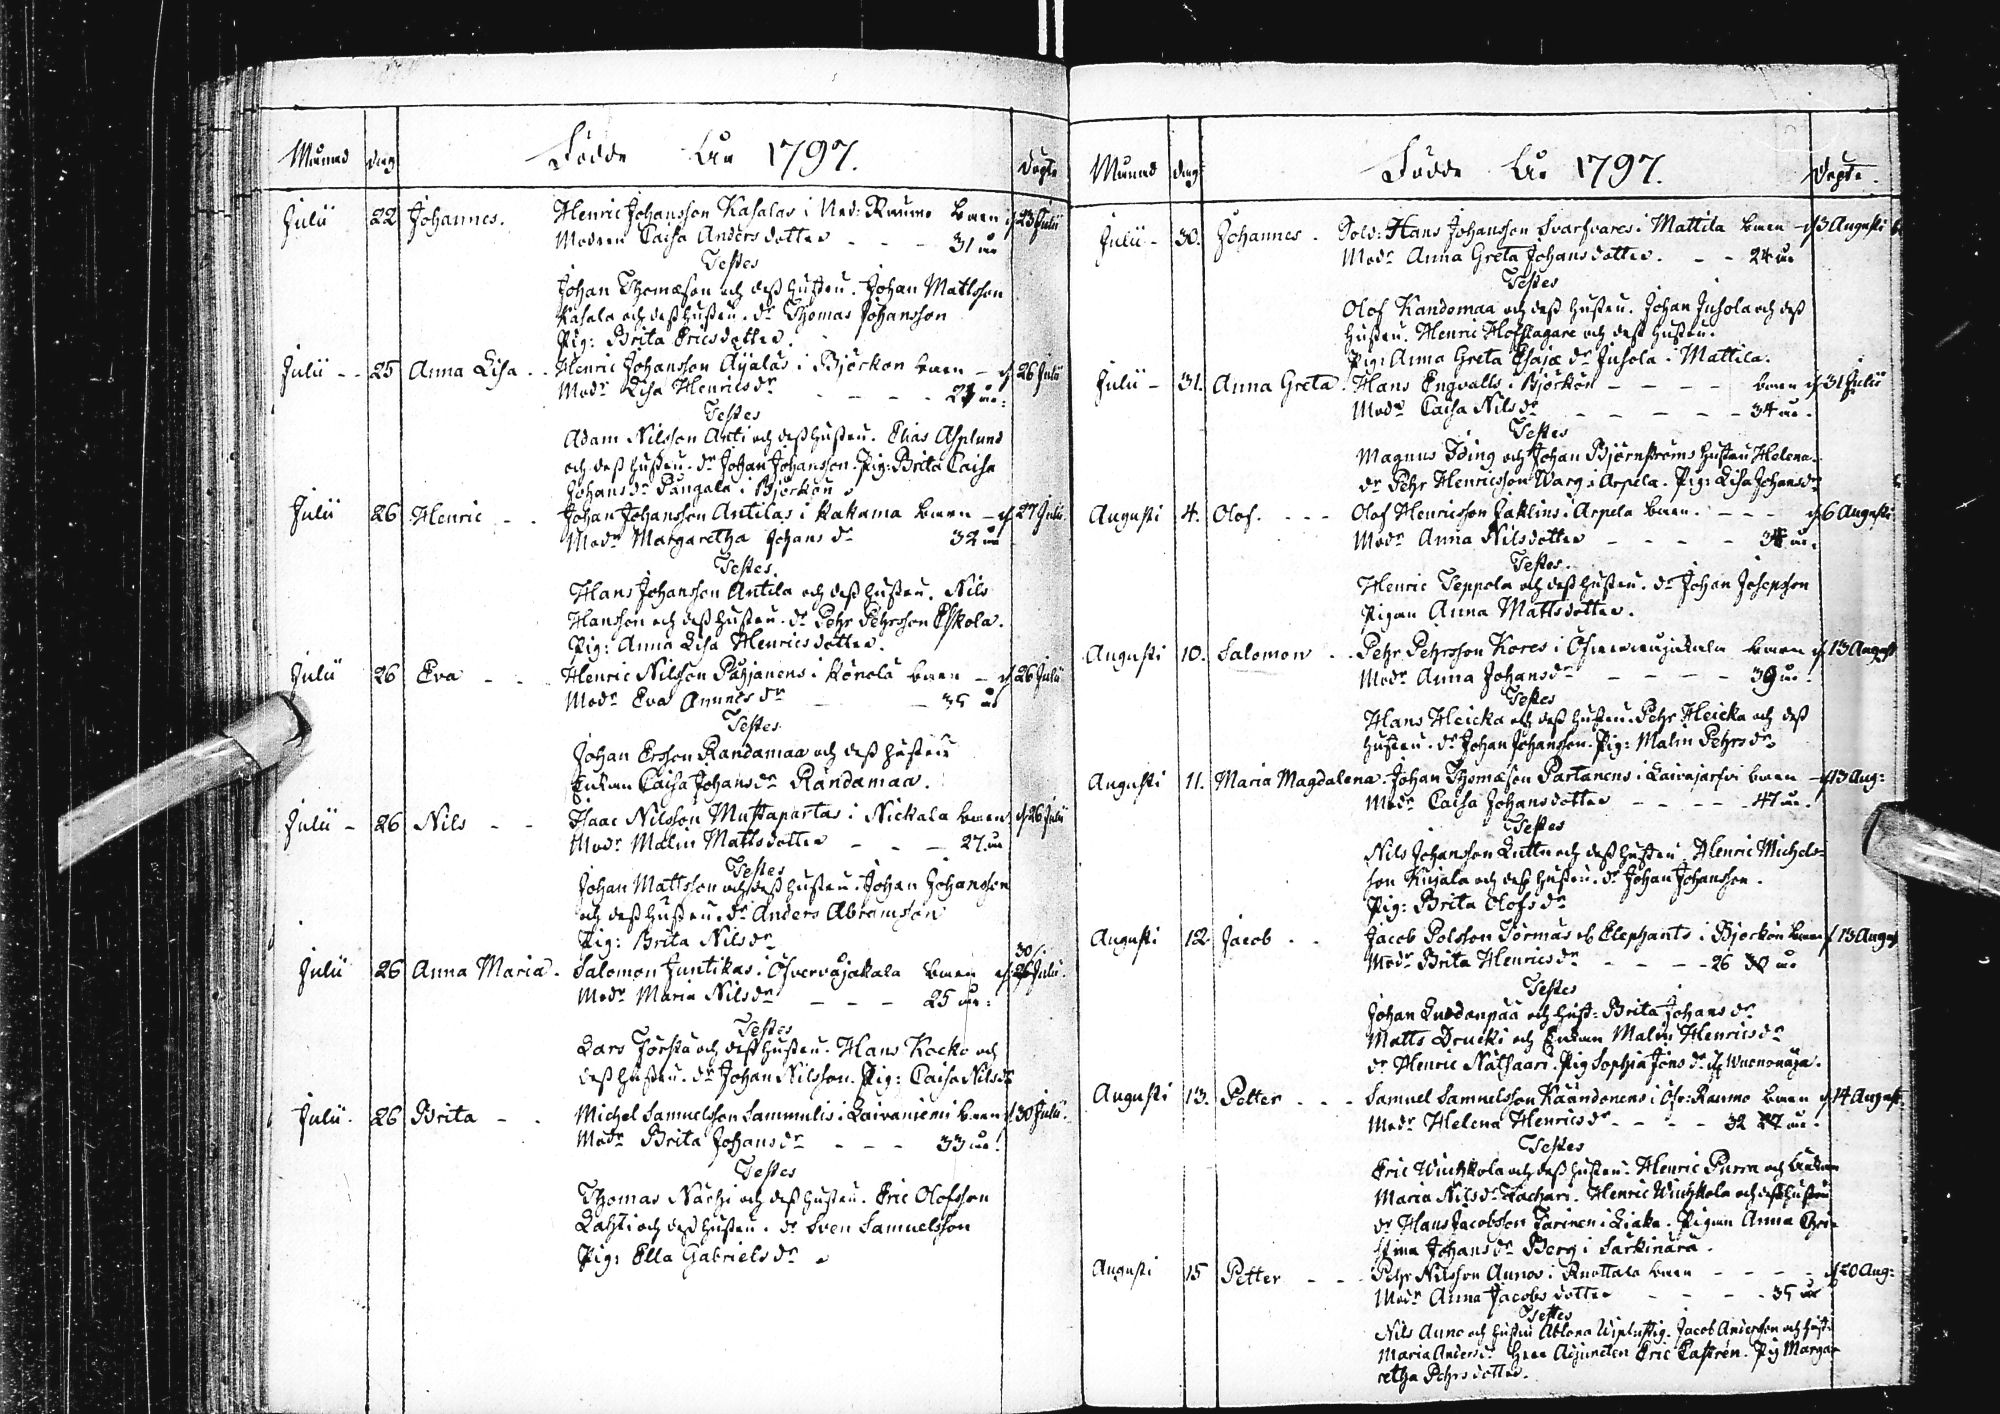 Månad dag Födde År 1797. Döpte
Julii 22 Johannes. Henric Johansson Kasalas i Ned: Raumo barn d 23 Julii
Modren Caisa Andersdotter - - - 31 år
Testes
Johan Thomæson och dess hustru. Johan Mattsson
Kasala och dess hustru. dr Thomas Johansson
Pig: Brita Ericsdotter.
Julii - - 25 Anna Lisa . . Henric Johansson Äijälas i Björkön barn - d 26 Julii
Modr Lisa Henricsdr - - - - år:
Testes
Adam Nilsson Anti och dess hustru. Elias Asplund
och dess hustru. dr Johan Johansson. Pig: Brita Caisa
Johansdr Pångala i Björkön.
Julii 26 Henric - - Johan Johansson Antilas i Kakama barn - d 27 Julii
Modr Margaretha Johansdr 32 år
Testes
Hans Johansson Antila och dess hustru. Nils
Hansson och dess hustru. dr Pehr Pehrsson Eskola.
Pig: Anna Lisa Henricsdotter.
Julii 26 Eva - - Henric Nilsson Päijänens i Könölä barn - d 26 Julii
Modr Eva Amnésdr - - 35 år
Testes
Johan Ersson Randamaa och dess hustru
Enkan Caisa Johansdr Randamaa.
Julii - 26 Nils - - Isaac Nilsson Mustapartas i Nickala barn d 26 Julii
Modr Malin Mattsdotter - - - 27 år
Testes
Johan Mattsson och dess hustru. Johan Johansson
och dess hustru. dr Anders Abramsson
Pig: Brita Nilsdr
Julii 26 Anna Maria. Salomon Juntikas i Öfvervojakala barn d 30/ Julii.
Modr Maria Nilsdr - - - 25 år:
Testes
Lars Törstä och dess hustru. Hans Kocko och
dess hustru. dr Johan Nilsson. Pig: Caisa Nilsdr
Julii. 26 Brita - - Michel Samuelsson Sammulis i Laivaniemi barn d 30 Julii.
Modr Brita Johansdr - - - 33 år.
Testes
Thomas Närhi och dess hustru. Eric Olofsson
Lahti och dess hustru. dr Sven Samuelsson
Pig: Ella Gabrielsdr.
Månad dag Födde År 1797. Döpte.
Julii - 30. Johannes. Sold: Hans Johansson Svarfvares i Mattila barn - d 3 Augusti
Modr Anna Greta Johansdotter. - - 24 år
Testes
Olof Kandomaa och dess hustru. Johan Juhola och dess
hustru. Henric Hofslagare och dess hustru.
Pig: Anna Greta Esajædr Juhola i Mattila.
Julii - 31. Anna Greta. Hans Engvalls i Björkön - - - - barn d 31 Julii
Modr Caisa Nilsdr - - - - 34 år.
Testes
Magnus Iding och Johan Björnströms hustru Helena
dr Pehr Henricsson Warg i Arpela. Pig: Lisa Johansdr
Augusti 4. Olof. - - - Olof Henricsson Jaklins i Arpela barn. - - - d 6 Augusti
Modr Anna Nilsdotter - - - - år.
Testes.
Henric Teppola och dess hustru. dr Johan Josephson
Pigan Anna Mattsdotter.
Augusti 10. Salomon . . Pehr Pehrsson Kores i Öfvervojakala barn d 13 August
Modr Anna Johansdr - - - - 39 år.
Testes
Hans Heicka och dess hustru. Pehr Heicka och dess
hustru. dr Johan Johansson. Pig: Malin Pehrsdr.
Augusti 11. Maria Magdalena. Johan Thomæson Partanens i Laivajärfvi barn - d 13 Aug:
Modr Caisa Johansdotter - - - - 47 år.
Testes
Nils Johansson Luttu och dess hustru. Henric Michels-
son Kujala och dess hustru. dr Johan Johansson.
Pig: Brita Olofsdr
Augusti 12 Jacob . . Jacob Polsson Törmäs eb Elephants i Björkön barn d 13 August
Modr Brita Henricsdr - - - - 26 år
Testes
Johan Luodonpää och hust: Brita Johansdr
Matts Drucki och Enkan Malin Henricsdr
dr Henric Nätsaari. Pig Sophia Jönsdr
Augusti 13. Petter - - - Samuel Samuelsson Käändonens i Öfv: Raumo barn d 14 August.
Modr Helena Henricsdr - - - - 32 år.
Testes
Eric Wuohkola och dess hustru. Henric Purra och Enkan
Maria Nilsdr Zachari. Henric Wuohkola och dess hustru
dr Hans Jacobsson Tarinen i Liaka. Pigan Anna Chri-
stina Johansdr Berg i Särkinärä.
Augusti 15 Petter - - - Pehr Nilsson Aunos i Ruottala barn - - - - d 20 Aug:
Modr Anna Jacobsdotter - - - - 35 år
Testes
Nils Auno och hustru Ablona Wiplustig. Jacob Andersson och hustr
Maria Andersdr Herr Adjuncten Eric Castrén. Pig Marga-
retha Pehrsdotter.